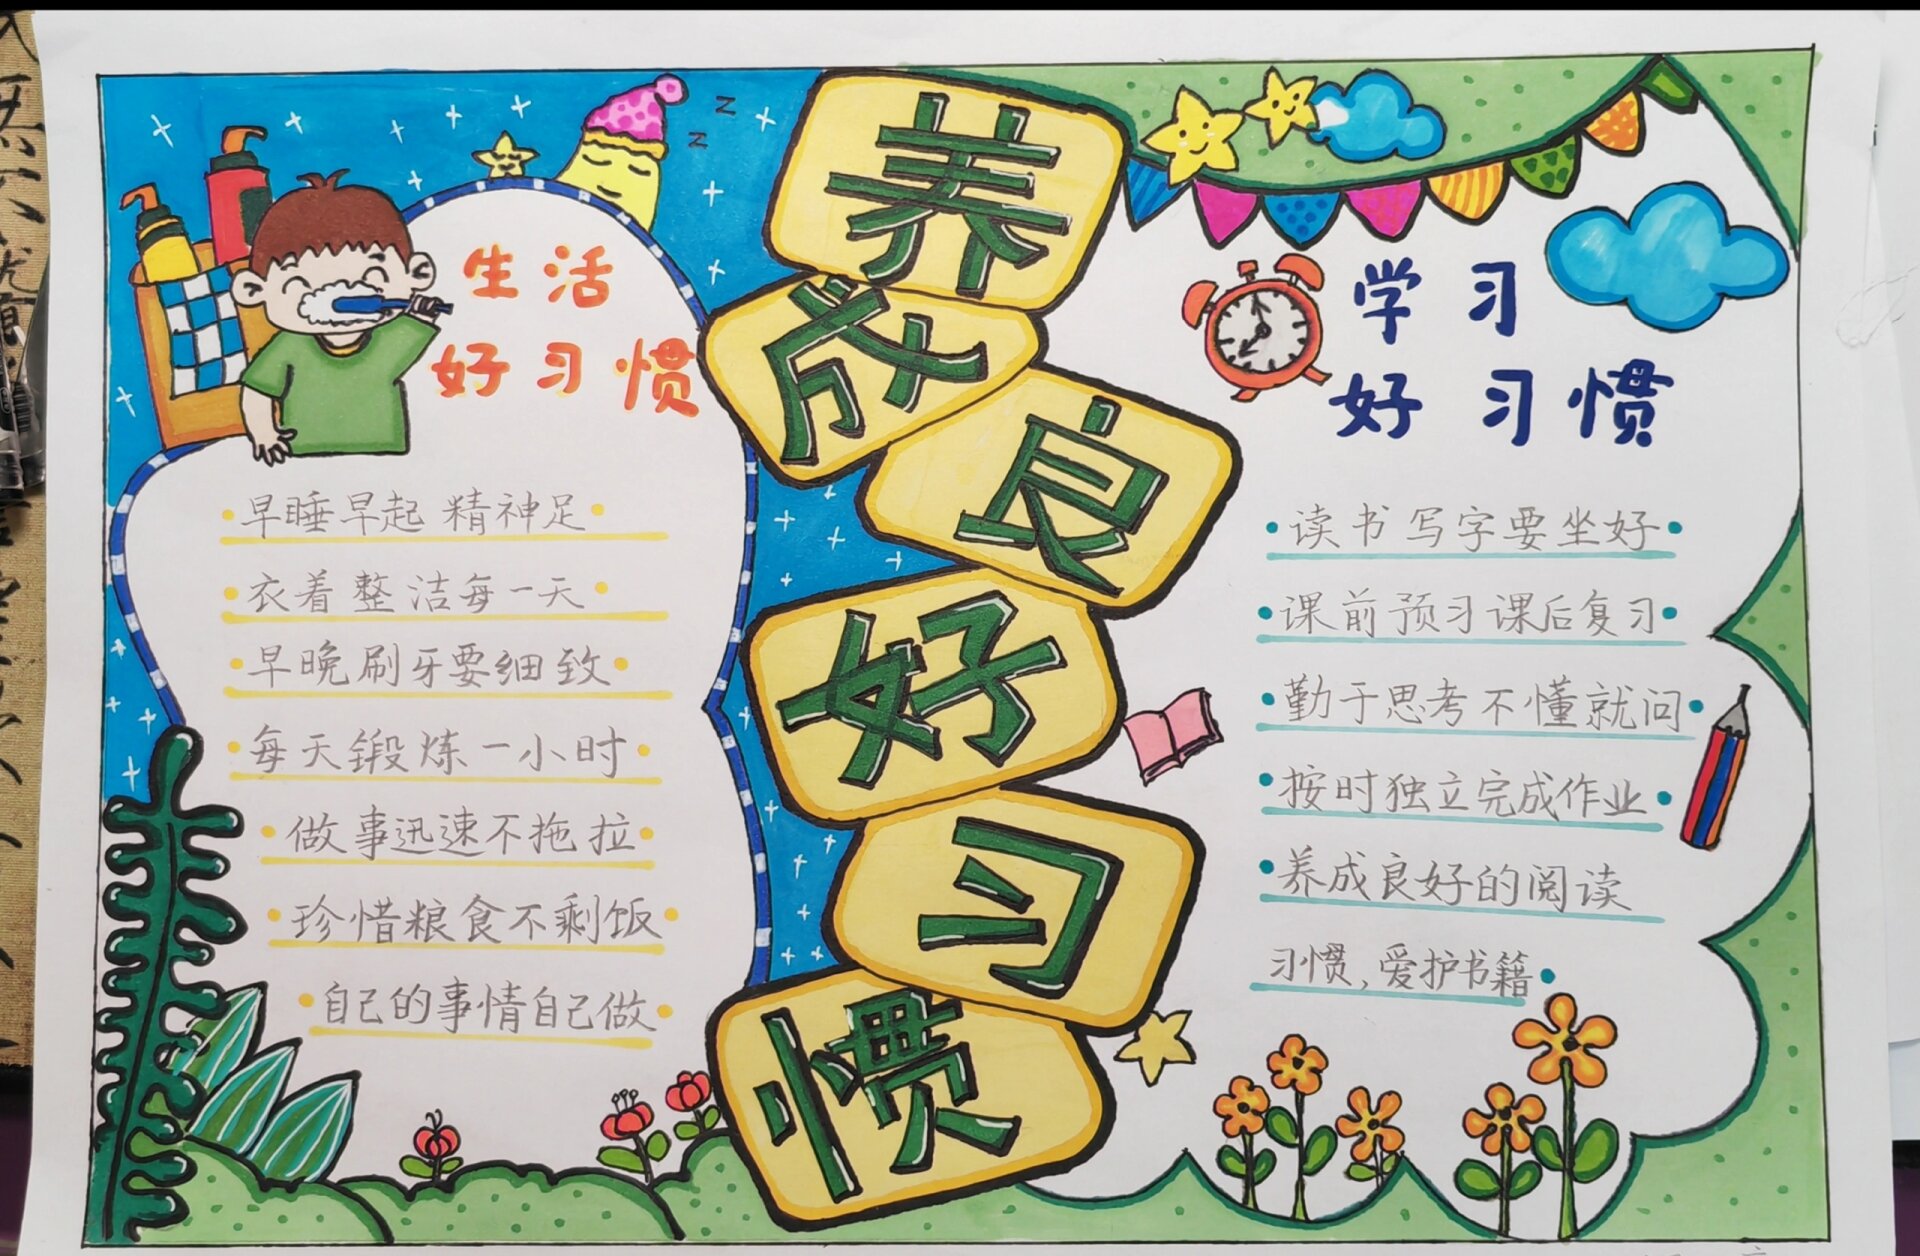 养成良好习惯
生活
好习惯
早睡早起 精神足
衣着整洁每一天
早晚刷牙要细致
每天锻炼一小时
做事迅速不拖拉
珍惜粮食不剩饭
自己的事情自己做
学习
好习惯
读书写字要坐好
课前预习课后复习
勤于思考不懂就问
按时独立完成作业
养成良好的阅读
习惯，爱护书籍
z
z